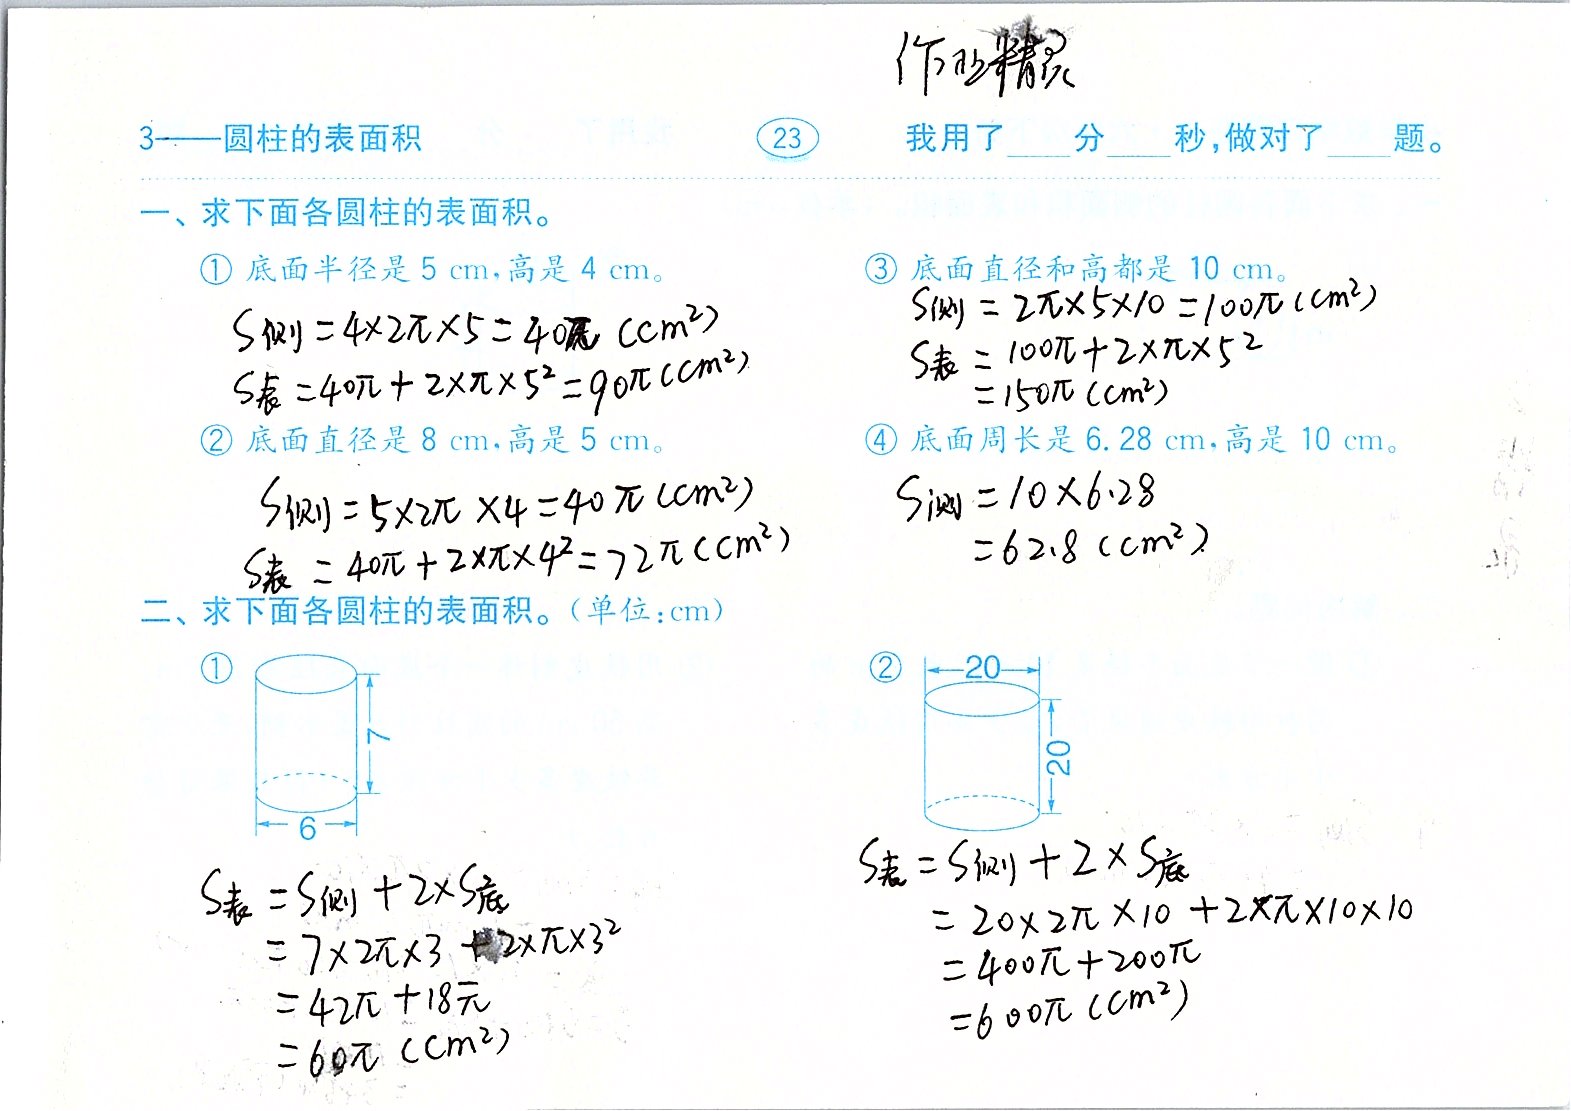 作业精灵
3——圆柱的表面积 23 我用了____分____秒,做对了____题。
一、求下面各圆柱的表面积。
① 底面半径是 5 cm,高是 4 cm。
S侧=4×2π×5=40π (cm²)
S表=40π+2×π×5²=90π(cm²)
② 底面直径是 8 cm,高是 5 cm。
S侧=5×2π×4=40π(cm²)
S表=40π+2×π×4²=72π(cm²)
③ 底面直径和高都是 10 cm。
S侧=2π×5×10=100π(cm²)
S表=100π+2×π×5²
=150π(cm²)
④ 底面周长是 6.28 cm,高是 10 cm。
S侧=10×6.28
=62.8(cm²)
二、求下面各圆柱的表面积。(单位:cm)
①
7
6
S表=S侧+2×S底
=7×2π×3+2×π×3²
=42π+18元
=60π(cm²)
②
20
20
S表=S侧+2×S底
=20×2π×10+2×π×10×10
=400π+200π
=600π(cm²)